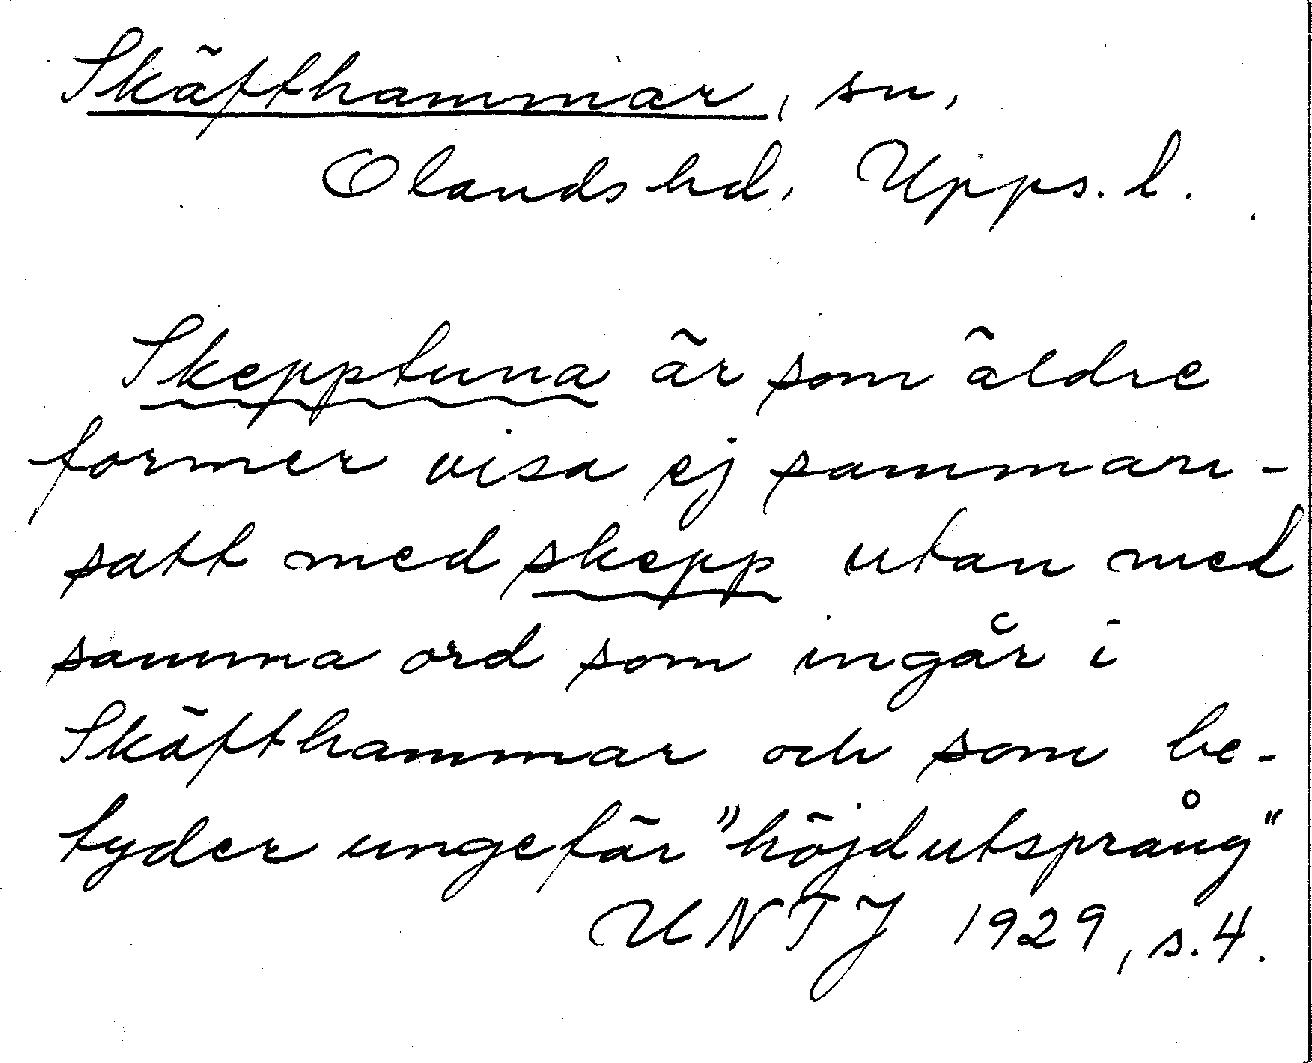 Skäfthammar, sn,
Olands hd, Upps. l.
Skepptuna är som äldre
former visa ej samman-
satt med skepp utan med
samma ord som ingår i
Skäfthammar och som be-
tyder ungefär "höjdutsprång"
UNTJ 1929, s. 4.